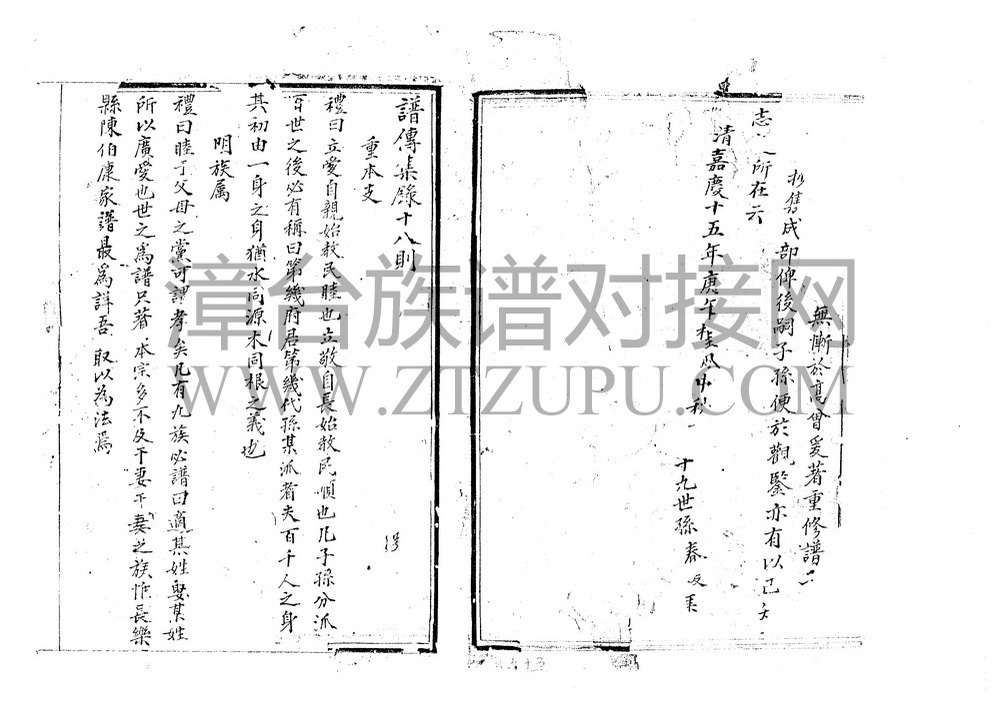 無慚於高曾爰著重修譜
集成部俾後嗣子孫便於觀鑒亦有以已
志之所在云
清嘉慶十五年庚午桂月中秋
十九世孫春
譜傳集錄十八則
重本支
禮曰立愛自親始教民睦也立敬自長始教民順也凡子孫分派
百世之後必有稱曰第幾府君第幾代孫某派者夫百千人之身
其初由一身之身猶水同源木同根之義也
明族属
禮曰睦于父母之黨可謂孝矣凡有九族必譜曰適某姓娶某姓
所以廣愛也世之為譜只著本宗多不及于妻于妻之族惟長樂
縣陳伯康家譜最為詳吾取以為法焉
漳台族谱对接网
WWW.ZTZUPU.COM